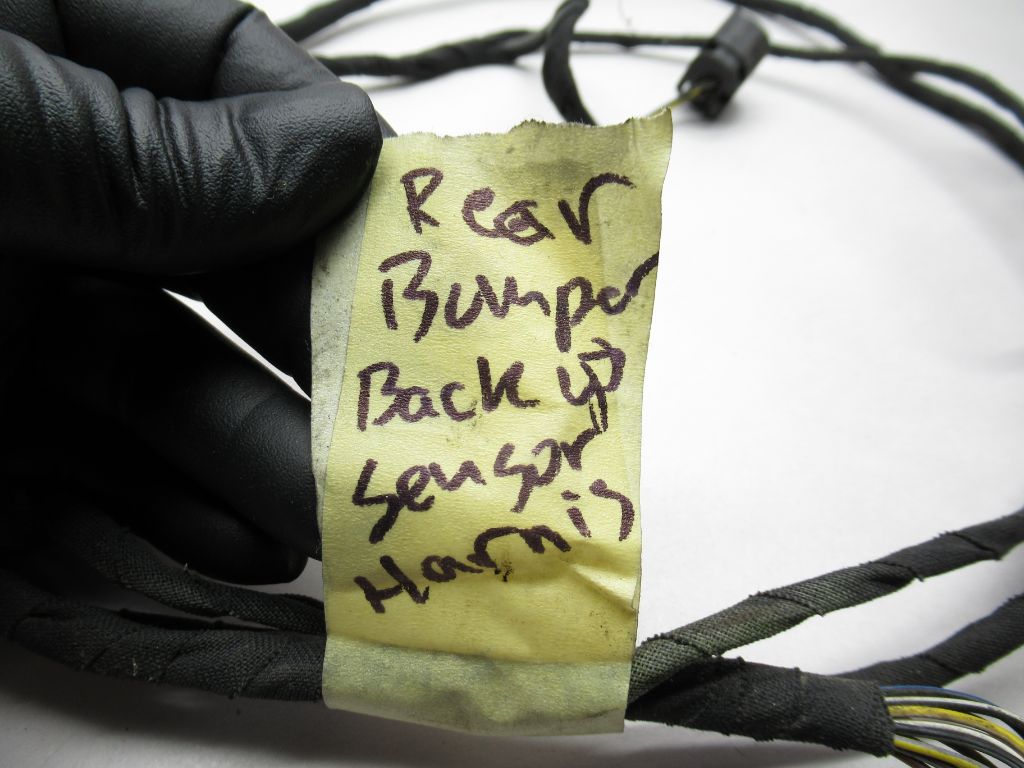 Rear
Bumper
Back up
Sensor
Harnis